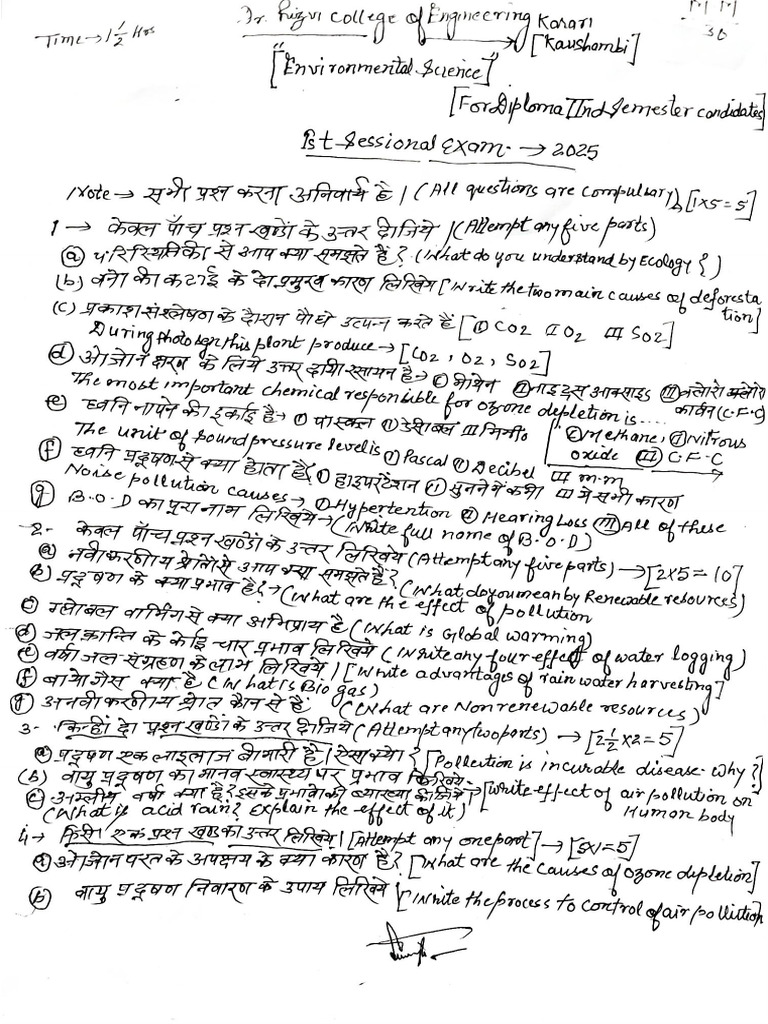 Time → 1 1/2 Hrs
Dr. Rizvi College of Engineering Karari
[Kaushambi]
M M
30
"[Environmental Science]"
[For Diploma IInd Semester candidates]
Ist Sessional Exam. → 2025
Note → सभी प्रश्न करना अनिवार्य है। (All questions are compulsary) [1x5=5]
1 → केवल पाँच प्रश्न खण्डों के उत्तर दीजिये। (Attempt any five parts)
(a) परिस्थितिकी से आप क्या समझते हैं? (What do you understand by Ecology?)
(b) वनो की कटाई के दो प्रमुख कारण लिखिये [Write the two main causes of deforestation]
(c) प्रकाश संश्लेषण के दौरान पौधे उत्पन्न करते हैं [① CO2 Ⅱ O2 Ⅲ SO2]
During photosgn this plant produce → [CO2, O2, SO2]
(d) ओजोन क्षरण के लिये उत्तरदायी रसायन है → ① मीथेन Ⅱ नाइट्रस आक्साइड Ⅲ क्लोरो फ्लोरो कार्बन (C.F.C)
The most important chemical responsible for ozone depletion is....
[① Methane, Ⅱ Nitrous oxide Ⅲ C.F.C
(e) ध्वनि नापने की इकाई है → ① पास्कल Ⅱ डेसीबल Ⅲ मिमी०
The unit of sound pressure level is ① Pascal Ⅱ Decibel Ⅲ m.m
(f) ध्वनि प्रदूषण से क्या होता है? ① हाइपरटेंशन Ⅱ सुनने में कमी Ⅲ ये सभी कारण
Noise pollution causes → ① Hypertention Ⅱ Hearing Loss Ⅲ All of these
(g) B.O.D का पूरा नाम लिखिये → (Write full name of B.O.D)
2- केवल पाँच प्रश्न खण्डों के उत्तर लिखिये (Attempt any five parts) → [2x5=10]
(a) नवीकरणीय श्रोतो से आप क्या समझते हैं? (What do you mean by Renewable resources)
(b) प्रदूषण के क्या प्रभाव है? → (What are the effect of pollution
(c) ग्लोबल वार्मिंग से क्या अभिप्राय है (What is Global warming)
(d) जल क्रान्ति के कोई चार प्रभाव लिखिये (Write any four effect of water logging)
(e) वर्षा जल संग्रहण के लाभ लिखिये। [Write advantages of rain water harvesting]
(f) बायो गैस क्या है (What is Bio gas)
(g) अनवीकरणीय श्रोत कौन से हैं (What are Nonrenewable resources)
3- किन्हीं दो प्रश्न खण्डों के उत्तर दीजिये (Attempt any two parts) → [2 1/2 x2=5]
(a) प्रदूषण एक लाइलाज बीमारी है। ऐसा क्यो? [Pollection is incurable disease. why?]
(b) वायु प्रदूषण का मानव स्वास्थ्य पर प्रभाव लिखिये- [Write effect of air pollution on Human body
(c) अम्लीय वर्षा क्या है? इसके प्रभावो की व्याख्या कीजिये
(What is acid rain? Explain the effect of it)
4 → किसी एक प्रश्न खण्ड का उत्तर लिखिये। [Attempt any one part] → [5x1=5]
(a) ओजोन परत के अपक्षय के क्या कारण है? [What are the causes of ozone depletion]
(b) वायु प्रदूषण निवारण के उपाय लिखिये [Write the process to control of air pollution]